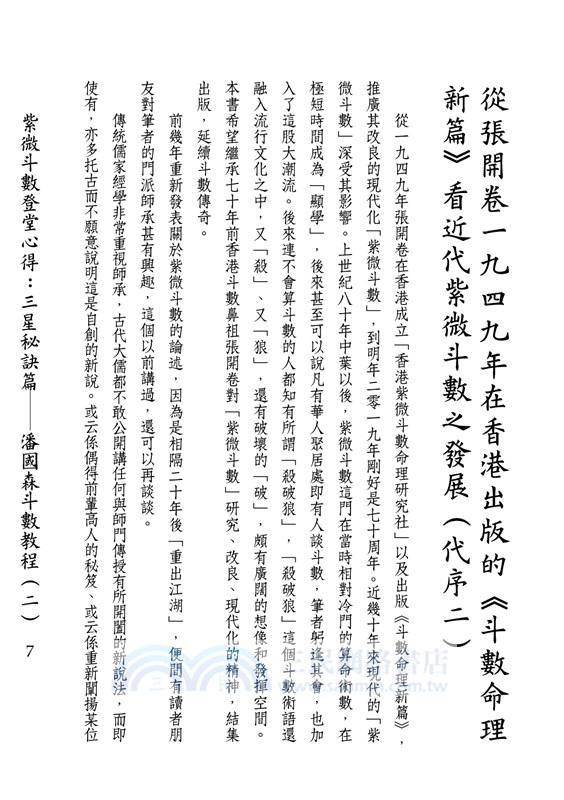 從張開卷一九四九年在香港出版的《斗數命理
新篇》看近代紫微斗數之發展（代序二）
從一九四九年張開卷在香港成立「香港紫微斗數命理研究社」以及出版《斗數命理新篇》，
推廣其改良的現代化「紫微斗數」，到明年二零一九年剛好是七十周年。近幾十年來現代的「紫
微斗數」深受其影響。上世紀八十年中葉以後，紫微斗數這門在當時相對冷門的算命術數，在
極短時間成為「顯學」，後來甚至可以說凡有華人聚居處即有人談斗數，筆者躬逢其會，也加
入了這股大潮流。後來連不會算斗數的人都知有所謂「殺破狼」，「殺破狼」這個斗數術語還
融入流行文化之中，又「殺」、又「狼」，還有破壞的「破」，頗有廣闊的想像和發揮空間。
本書希望繼承七十年前香港斗數鼻祖張開卷對「紫微斗數」研究、改良、現代化的精神，結集
出版，延續斗數傳奇。
前幾年重新發表關於紫微斗數的論述，因為是相隔二十年後「重出江湖」，便間有讀者朋
友對筆者的門派師承甚有興趣，這個以前講過，還可以再談談。
傳統儒家經學非常重視師承，古代大儒都不敢公開講任何與師門傳授有所開闔的新說法，而即
使有，亦多托古而不願意說明這是自創的新說。或云係偶得前輩高人的秘笈、或云係重新闡揚某位
紫微斗數登堂心得：三星秘訣篇——潘國森斗數教程（二） 7
三民網路書店
www.sanmin.com.tw